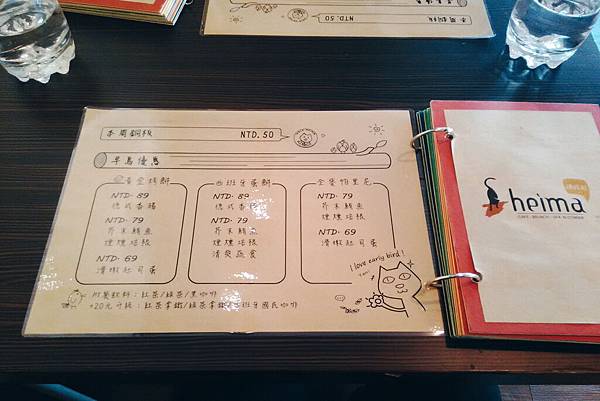 NTD.50 本周銅板
本周銅板 NTD.50
早鳥優惠
黃金烤餅
NTD. 89
德式香腸
NTD. 79
芥末鮪魚
煙燻培根
NTD. 69
滑嫩起司蛋
西班牙蛋餅
NTD. 89
德式香腸
NTD. 79
芥末鮪魚
煙燻培根
清爽蔬食
全麥帕里尼
NTD. 79
芥末鮪魚
煙燻培根
NTD. 69
滑嫩起司蛋
I love early bird!
附餐飲料：紅茶/綠茶/黑咖啡
+20元升級：紅茶拿鐵/綠茶拿鐵/西班牙國民咖啡
heima